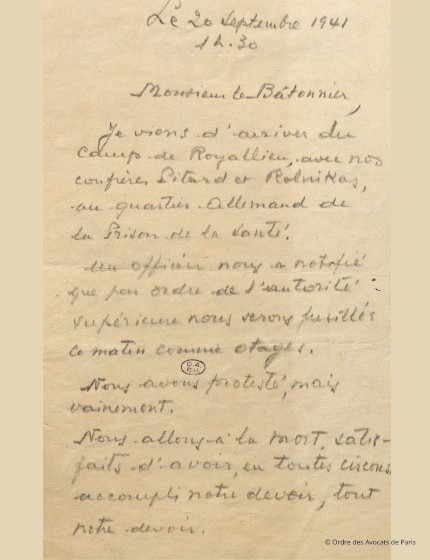 Le 20 Septembre 1941
1h.30
Monsieur le Bâtonnier,
Je viens d'arriver du
camp de Royallieu, avec nos
confrères Pitard et Rolnikas,
au quartier Allemand de
la Prison de la Santé.
Un officier nous a notifié
que par ordre de l'autorité
supérieure nous serons fusillés
ce matin comme otages.
Nous avons protesté, mais
vainement.
Nous allons à la mort, satis-
faits d'avoir, en toutes circons
accompli notre devoir, tout
notre devoir.
© Ordre des Avocats de Paris